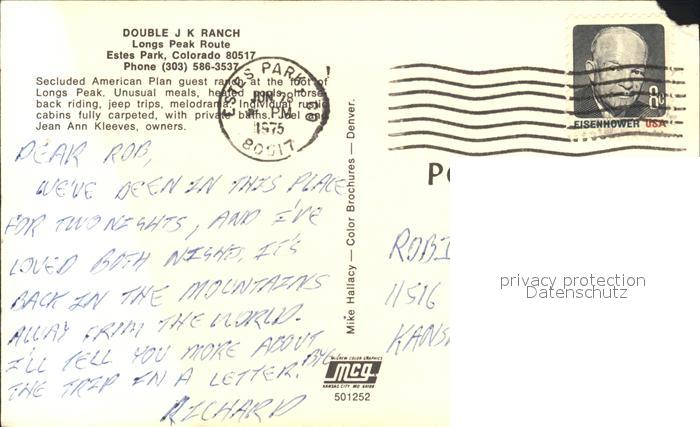 DOUBLE J K RANCH
Longs Peak Route
Estes Park, Colorado 80517
Phone (303) 586-3537
Secluded American Plan guest ranch at the foot of
Longs Peak. Unusual meals, heated pools, horse-
back riding, jeep trips, melodrama. Individual rustic
cabins fully carpeted, with private baths. Joel and
Jean Ann Kleeves, owners.
ESTES PARK, CO
JUN 28
PM
1975
80517
EISENHOWER USA
8c
DEAR ROB,
WE'VE BEEN IN THIS PLACE
FOR TWO NIGHTS, AND I'VE
LOVED BOTH NIGHTS. IT'S
BACK IN THE MOUNTAINS
AWAY FROM THE WORLD.
I'LL TELL YOU MORE ABOUT
THE TRIP IN A LETTER. BYE
RICHARD
Mike Hallacy — Color Brochures — Denver.
PO
ROBI
11516
KANSA
privacy protection
Datenschutz
McGREW COLOR GRAPHICS
mcg
KANSAS CITY, MO 64108
501252